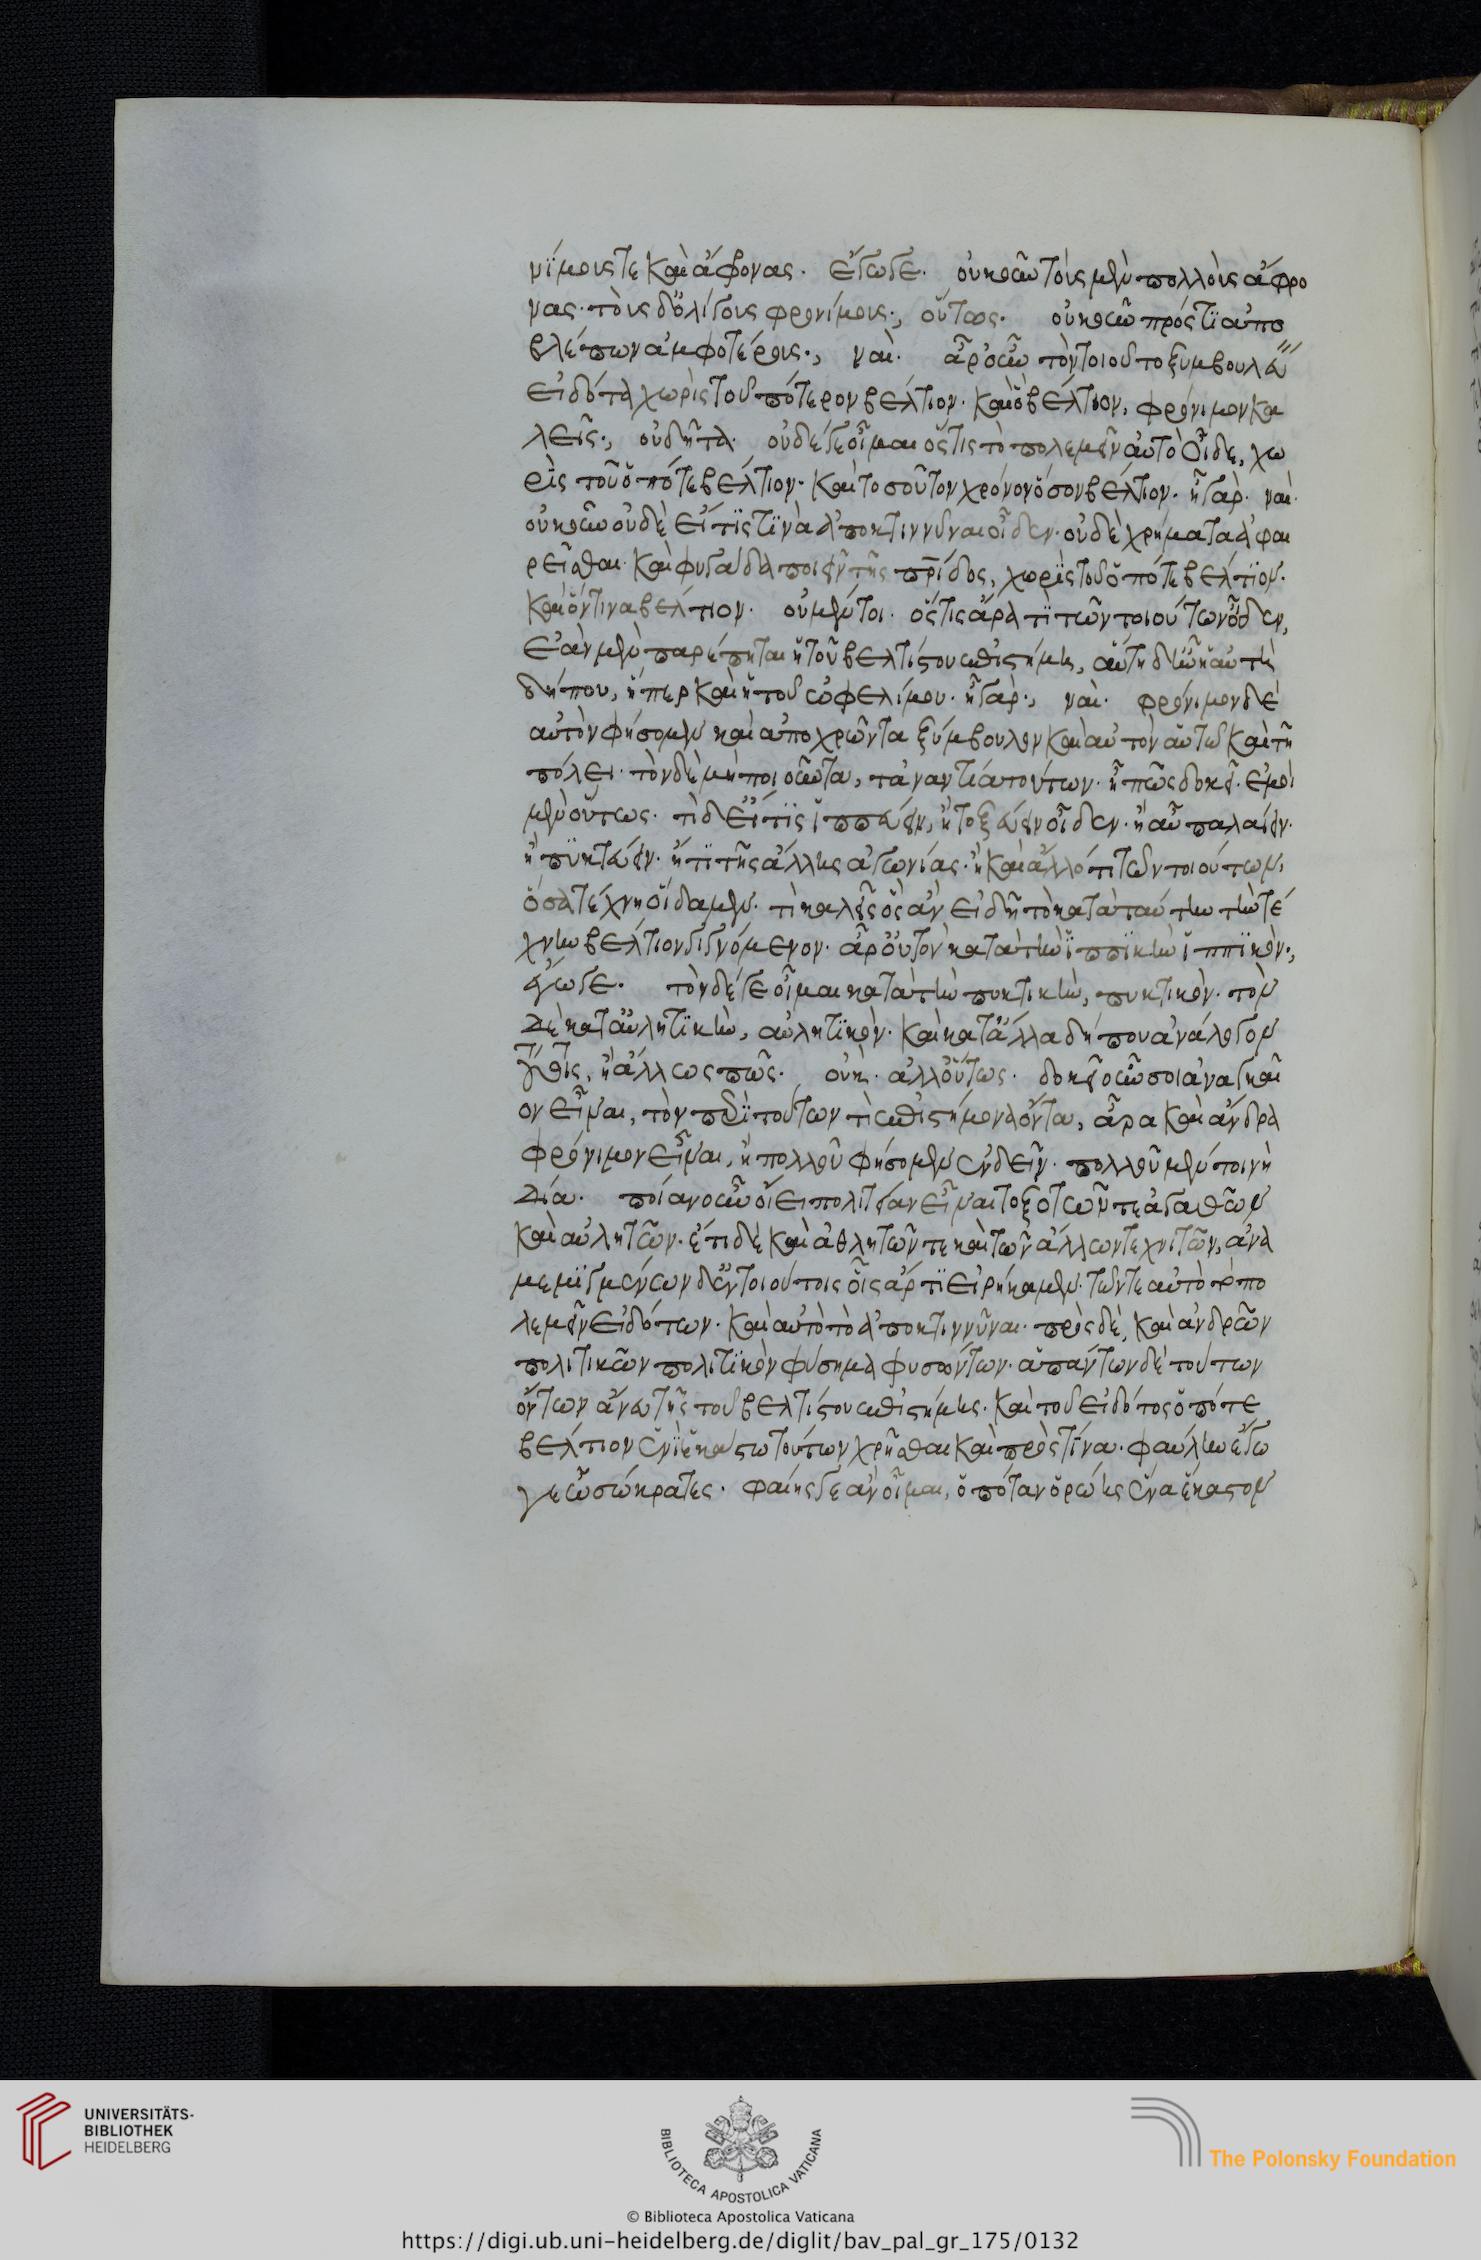 νίμους τε καὶ ἄφρονας. ἔγωγε. οὐκοῦν τοὺς μὲν πολλοὺς ἄφρο
νας. τοὺς δ' ὀλίγους φρονίμους., οὕτως. οὐκοῦν πρός τι ἀπο
βλέπων ἀμφοτέρους., ναί. ἆρ' οὖν τὸν τοιοῦτο ξυμβουλεύειν
εἰδότα χωρὶς τοῦ πότερον βέλτιον. καὶ ὃ βέλτιον, φρόνιμον κα
λεῖς., οὐ δῆτα. οὐδέ γε οἶμαι ὅστις τὸ πολεμεῖν αὐτὸ οἶδε, χω
ρὶς τοῦ ὁπότε βέλτιον. καὶ τοσοῦτον χρόνον ὅσον βέλτιον. ἦ γάρ. ναί.
οὐκοῦν οὐδὲ εἴ τίς τινὰ ἀποκτιννύναι οἶδεν. οὐδὲ χρήματα ἀφαι
ρεῖσθαι. καὶ φυγάδα ποιεῖν τῆς πρίδος, χωρὶς τοῦ ὁπότε βέλτιον.
καὶ ὅντινα βέλτιον. οὐ μέντοι. ὅστις ἄρα τὶ τῶν τοιούτων οἶδεν,
ἐὰν μὲν παρέπηται ἡ τοῦ βελτίστου ἐπιστήμη, αὕτη δ' ἦν ἡ αὐτὴ
δήπου, ἥπερ καὶ ἡ τοῦ ὠφελίμου. ἦ γάρ., ναί. φρόνιμον δέ
αὐτὸν φήσομεν καὶ ἀποχρῶντα ξύμβουλον καὶ αὐτὸν αὑτῷ καὶ τῆ
πόλει. τὸν δὲ μὴ ποιοῦντα, τἀναντία τούτων. ἢ πῶς δοκεῖ. ἐμοὶ
μὲν οὕτως. τὶ δ' εἴ τίς ἱππεύειν, ἢ τοξεύειν οἶδεν. ἢ αὖ παλαίειν.
ἢ πυκτεύειν. ἤ τι τῆς ἄλλης ἀγωνίας. ἢ καὶ ἄλλό τι τῶν τοιούτων,
ὅσα τέχνη οἴδαμεν. τὶ καλεῖς ὃς ἂν εἰδῇ τὸ κατὰ ταύτην τὴν τέ
χνην βέλτιον γιγνόμενον. ἆρ' οὐ τὸν κατὰ τὴν ἱππικὴν ἱππικόν.,
ἔγωγε. τὸν δέ γε οἶμαι κατὰ τὴν πυκτικὴν, πυκτικόν. τὸν
δὲ κατ' αὐλητικὴν, αὐλητικόν. καὶ κατ' ἄλλα δήπου ἀνάλογον
τούτοις, ἢ ἄλλως πῶς. οὐκ. ἀλλ' οὕτως. δοκεῖ οὖν σοι ἀναγκαῖ
ον εἶναι, τὸν περὶ τούτων τὶ ἐπιστήμονα ὄντα, ἆρα καὶ ἄνδρα
φρόνιμον εἶναι, ἢ πολλοῦ φήσομεν ἐνδεῖν. πολλοῦ μέντοι νὴ
Δία. ποίαν οὖν οἴει πολιτείαν εἶναι τοξοτῶν τε ἀγαθῶν
καὶ αὐλητῶν. ἔτι δὲ καὶ ἀθλητῶν τε καὶ τῶν ἄλλων τεχνιτῶν, ἀνα
μεμιγμένων δ' ἐν τοιούτοις οἷς ἄρτι εἰρήκαμεν. τῶν τε αὐτὸ τὸ πο
λεμεῖν εἰδότων. καὶ αὐτὸ τὸ ἀποκτιννῦναι. πρὸς δὲ, καὶ ἀνδρῶν
πολιτικῶν πολιτικὸν φύσημα φυσώντων. ἁπάντων δὲ τούτων
ὄντων ἄνευ τῆς τοῦ βελτίστου ἐπιστήμης. καὶ τοῦ εἰδότος ὁπότε
βέλτιον ἑνὶ ἑκάστω τούτων χρῆσθαι καὶ πρὸς τίνα. φαύλην ἔγω
γε ὦ σώκρατες. φαίης γε ἂν οἶμαι, ὁπόταν ὁρώης ἕνα ἕκαστον
UNIVERSITÄTS-
BIBLIOTHEK
HEIDELBERG
BIBLIOTECA APOSTOLICA VATICANA
The Polonsky Foundation
© Biblioteca Apostolica Vaticana
https://digi.ub.uni-heidelberg.de/diglit/bav_pal_gr_175/0132